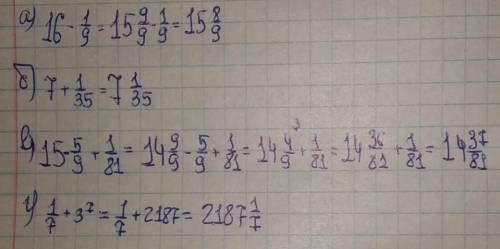 а) 16 - 1/9 = 15 9/9 - 1/9 = 15 8/9
б) 7 + 1/35 = 7 1/35
в) 15 - 5/9 + 1/81 = 14 9/9 - 5/9 + 1/81 = 14 4/9 + 1/81 = 14 36/81 + 1/81 = 14 37/81
г) 1/7 + 3⁷ = 1/7 + 2187 = 2187 1/7